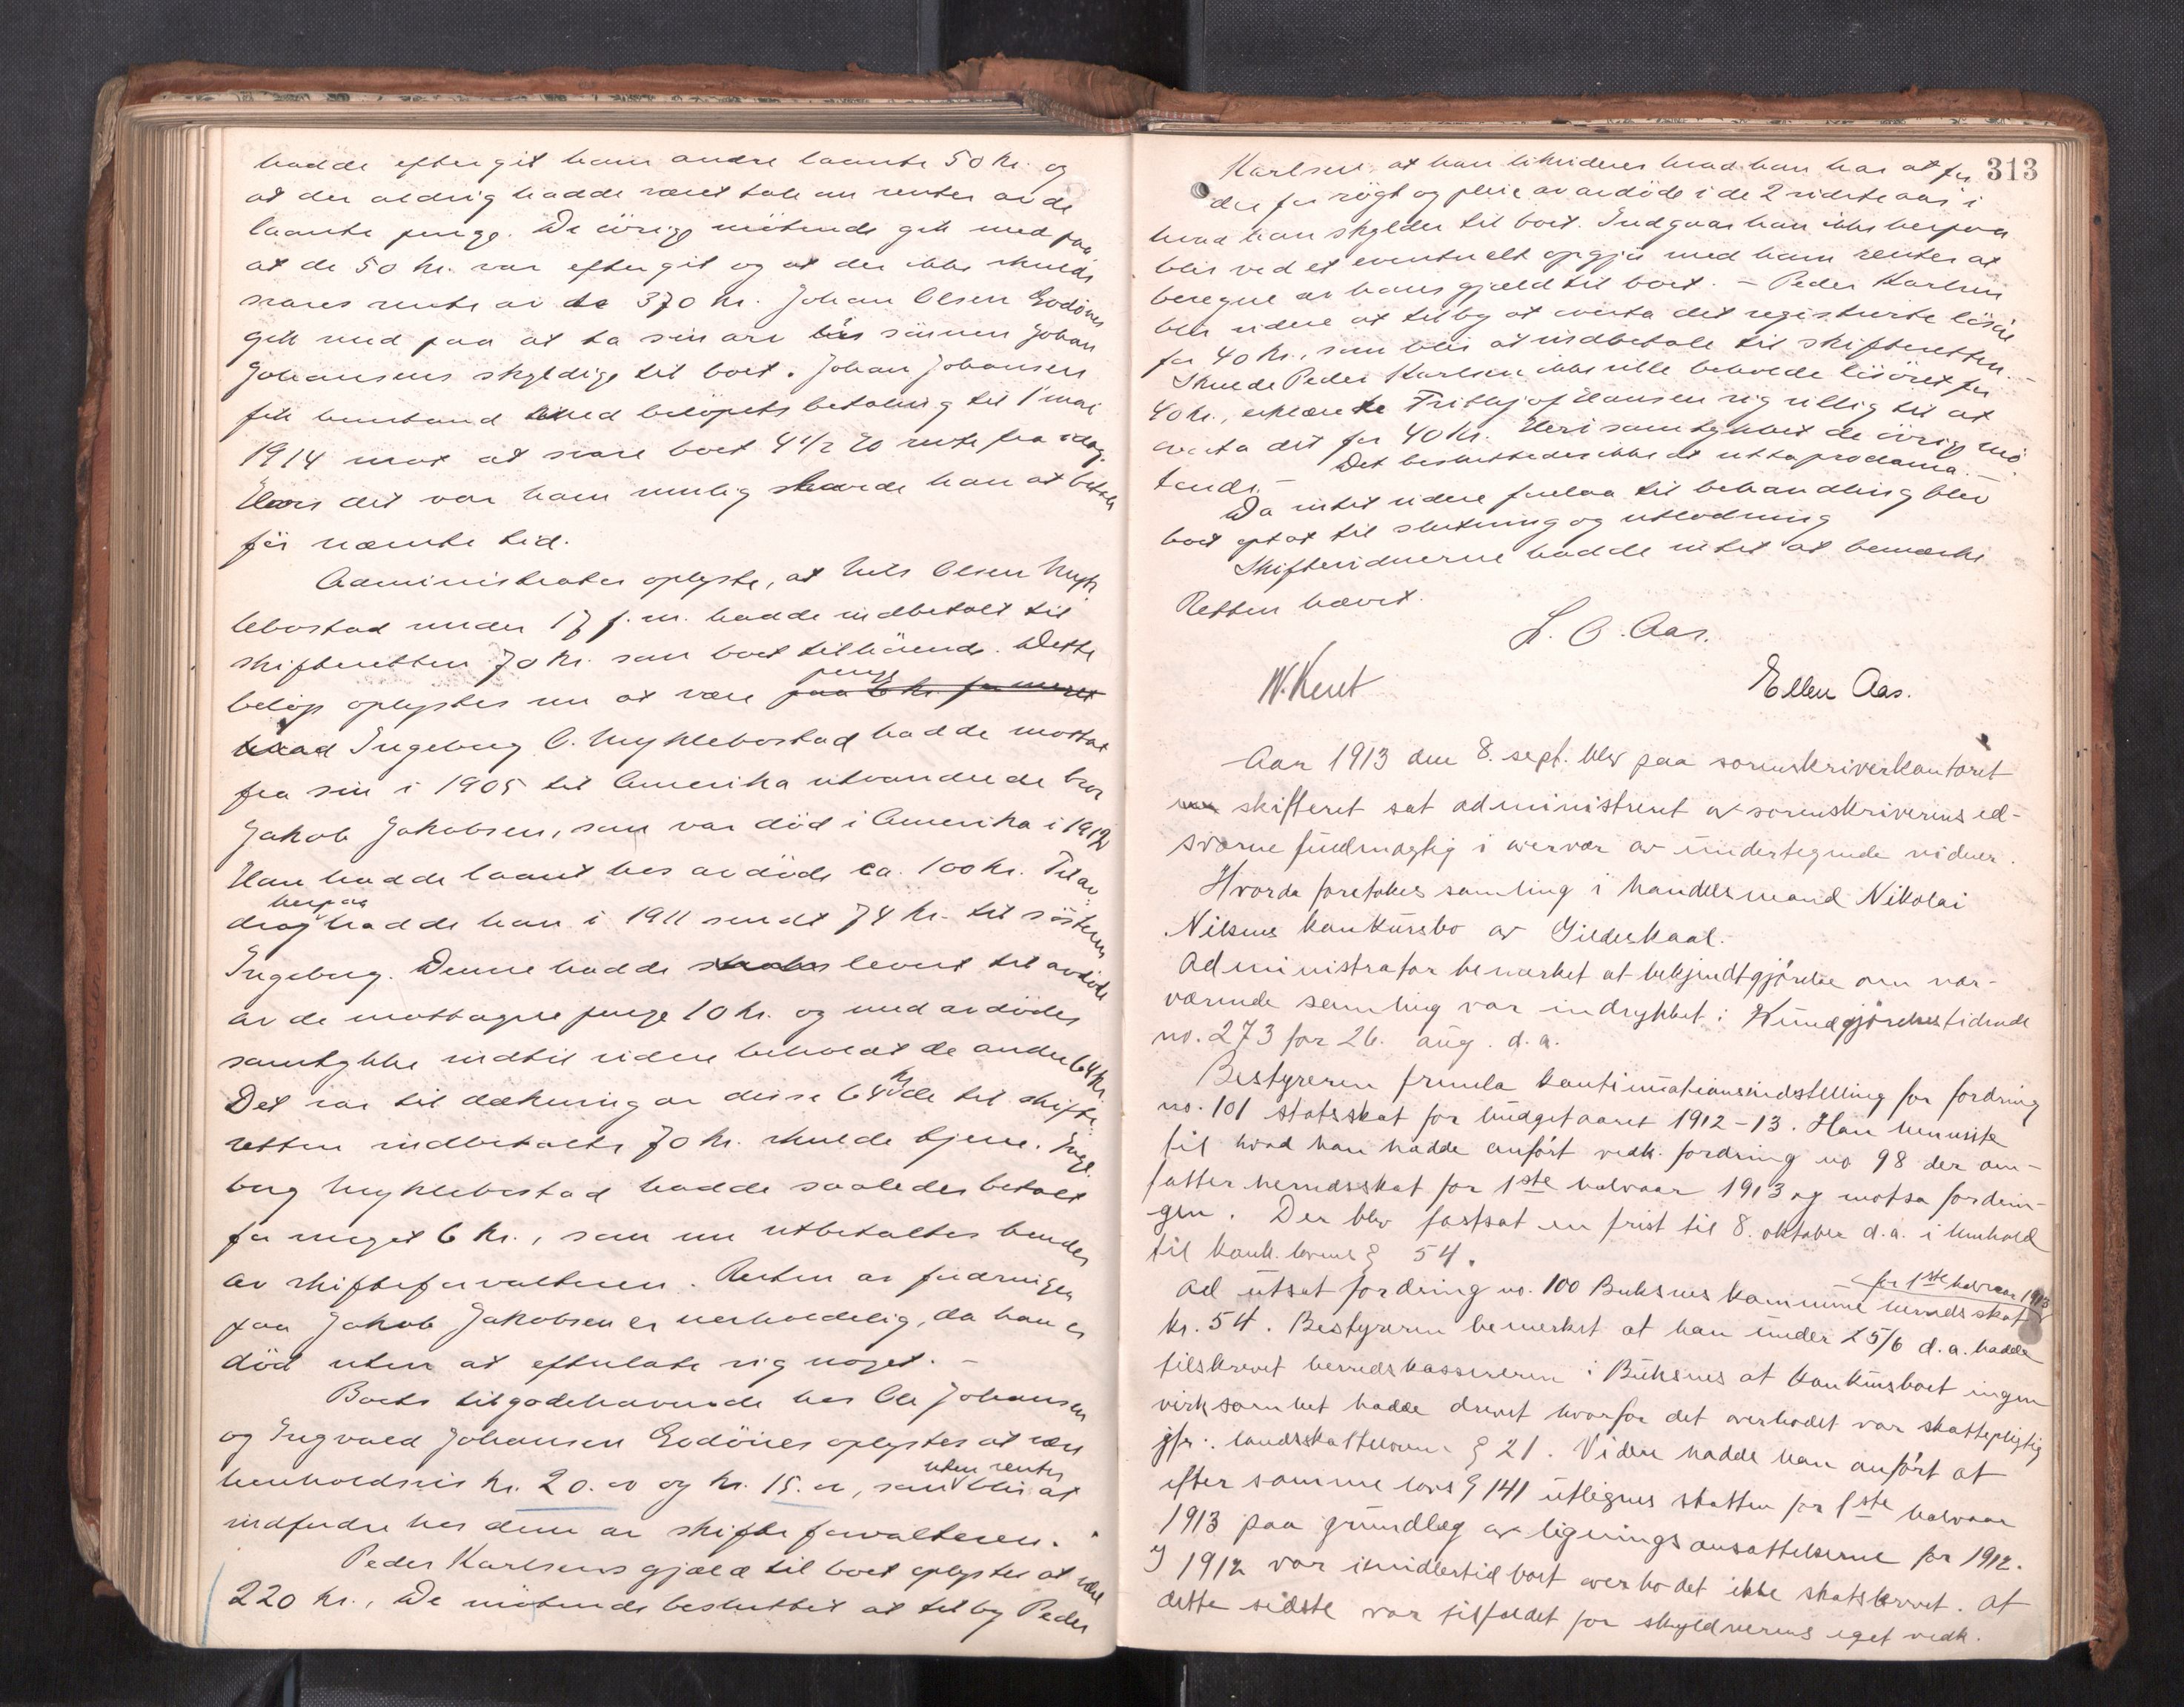 hadde eftergit ham andre laante 50 kr. og
at der aldrig hadde været tale om renter av de
laante penge. De övrige mötende gik med paa
at de 50 kr. var eftergit og at der ikke skulde
svares rente av de 370 kr. Johan Olsen Godönes
gik med paa at ta sin arv i sönnen Johan
Johansens skyldige til boet. Johan Johansen
fik henstand med belöpets betaling til 1 mai
1914 mot at svare boet 4 1/2 % rente fra idag.
Hvis det var ham mulig skulde han at betale
för nævnte tid.
Administrator oplyste, at Nils Olsen Myk-
lebostad under 17 f. m. hadde indbetalt til
skifteretten 70 kr. som boet tilhörende. Dette
belöp oplystes nu at være penge paa 6 kr. for meget
hvad Ingeborg O. Myklebostad hadde mottat
fra sin i 1905 til Amerika utvandrede bror
Jakob Jakobsen, som var död i Amerika i 1912
Han hadde laant hos avdöde ca. 100 kr. Til av-
drag herpaa hadde han i 1911 sendt 74 kr. til sösteren
Ingeborg. Denne hadde levert til avdöde
av de mottagne penge 10 kr. og med avdödes
samtykke indtil videre beholdt de andre 64 kr.
Det var til dækning av disse 64 kr. de til skifte-
retten indbetalte 70 kr. skulde tjene. Inge-
borg Myklebostad hadde saaledes betalt
for meget 6 kr., som nu utbetaltes hende
av skifteforvalteren. Resten av fordringen
paa Jakob Jakobsen er uerholdelig, da han er
död uten at efterlate sig noget. –
Boets tilgodehavende hos Ole Johansen
og Ingvald Johansen Godönes oplystes at være
henholdsvis kr. 20.00 og kr. 15.00, som uten renter blir at
indfordre hos dem av skifteforvalteren.
Peder Karlsens gjæld til boet oplystes at være
220 kr., De mötende besluttet at tilby Peder
313
Karlsen at han likviderer hvad han har at for-
dre for rögt og pleie av avdöde i de 2 sidste aar i
hvad han skylder til boet. Indgaar han ikke herpaa
blir ved et eventuelt opgjör med ham renter at
beregne av hans gjæld til boet. – Peder Karlsen
blir videre at tilby at overta det registrerte lösöre
for 40 kr., som blir at indbetale til skifteretten. –
Skulde Peder Karlsen ikke ville beholde lösöret for
40 kr., erklærte Fritjof Hansen sig villig til at
overta det for 40 kr. Heri samtykket de övrige mö-
tende. – Det besluttedes ikke at utta proclama. –
Da intet videre forelaa til behandling blev
boet optat til slutning og utlodning
Skiftevidnerne hadde intet at bemærke
Retten hævet.
L. O. Aas.
W. Kent
Ellen Aas.
Aar 1913 den 8. sept. blev paa sorenskriverkontoret
skifteret sat administreret av sorenskriverens ed-
svorne fuldmægtig i overvær av undertegnede vidner.
Hvorda foretokes samling i handelsmand Nikolai
Nilsens konkursbo av Gildeskaal.
Administrator bemerket at bekjendtgjörelse om nær-
værende samling var indrykket i Kundgjörelsestidende
no. 273 for 26. aug. d. a.
Bestyreren fremla kontinuationsindstilling for fordring
no. 101 statsskat for budgetaaret 1912–13. Han henviste
til hvad han hadde anfört vedk. fordring no 98 der om-
fatter herredsskat for 1ste halvaar 1913 og motsa fordrin-
gen. Der blev fastsat en frist til 8. oktober d. a. i henhold
til konk. lovens § 54.
Ad utsat fordring no. 100 Buksnes kommune herredsskat for 1ste halvaar 1913
kr. 54. Bestyreren bemerket at han under 25/6 d. a. hadde
tilskrevet herredskassereren i Buksnes at konkursboet ingen
virksomhet hadde drevet hvorfor det overhodet var skattepligtig
jfr. landsskatteloven § 21. Videre hadde han anfört at
efter samme lovs § 141 utlignes skatten for 1ste halvaar
1913 paa grundlag av ligningsansættelserne for 1912.
I 1912 var imidlertid boet overhodet ikke skatskrevet. At
dette sidste var tilfældet for skyldnerens eget vedk.